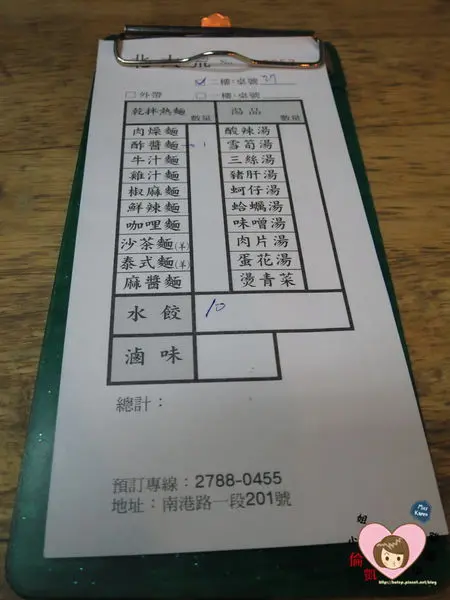 二樓:桌號 27
外帶 一樓:桌號
乾拌熱麵 數量 湯品 數量
肉燥麵 酸辣湯
酢醬麵 1 雪筍湯
牛汁麵 三絲湯
雞汁麵 豬肝湯
椒麻麵 蚵仔湯
鮮辣麵 蛤蠣湯
咖哩麵 味噌湯
沙茶麵(羊) 肉片湯
泰式麵(羊) 蛋花湯
麻醬麵 燙青菜
水餃 10
滷味
總計：
預訂專線：2788-0455
地址：南港路一段201號